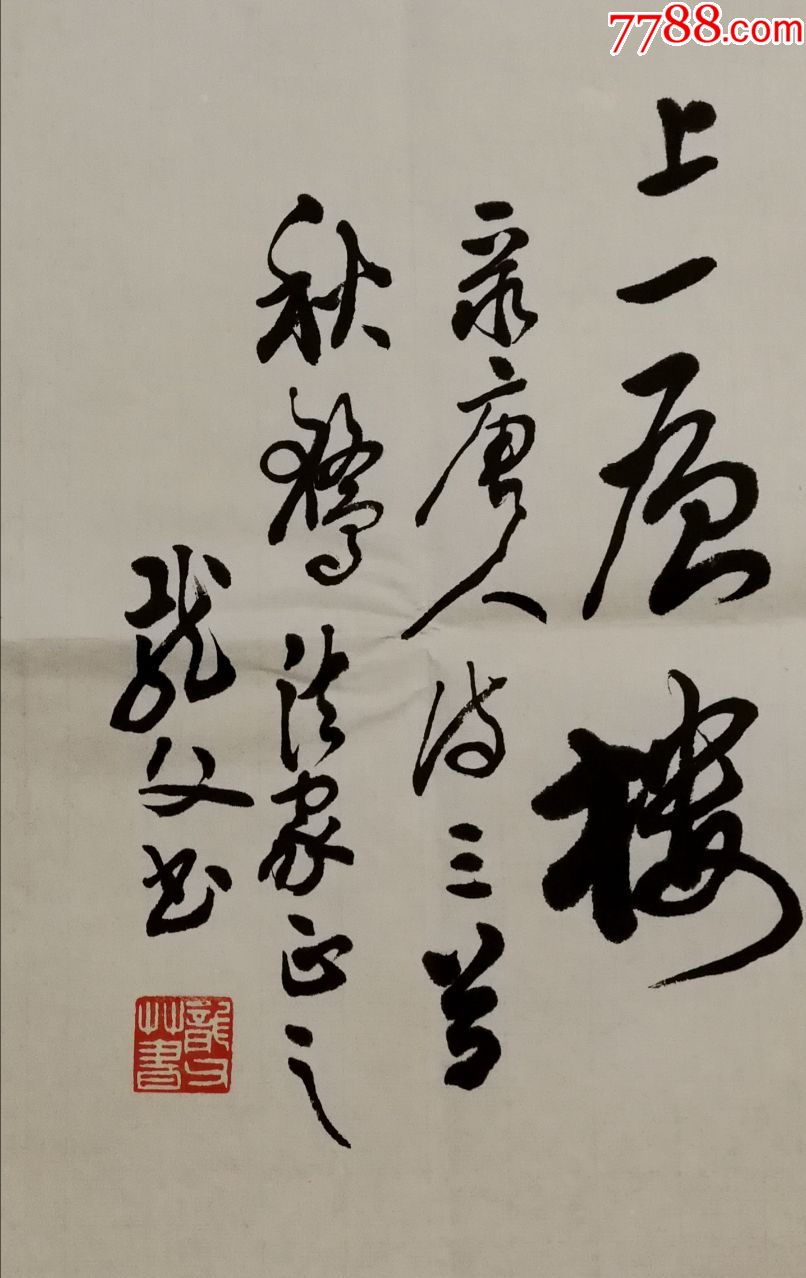 上一层楼
录唐人诗三首
秋鹜法家正之
龙父书
龍父
艸書
7788.com